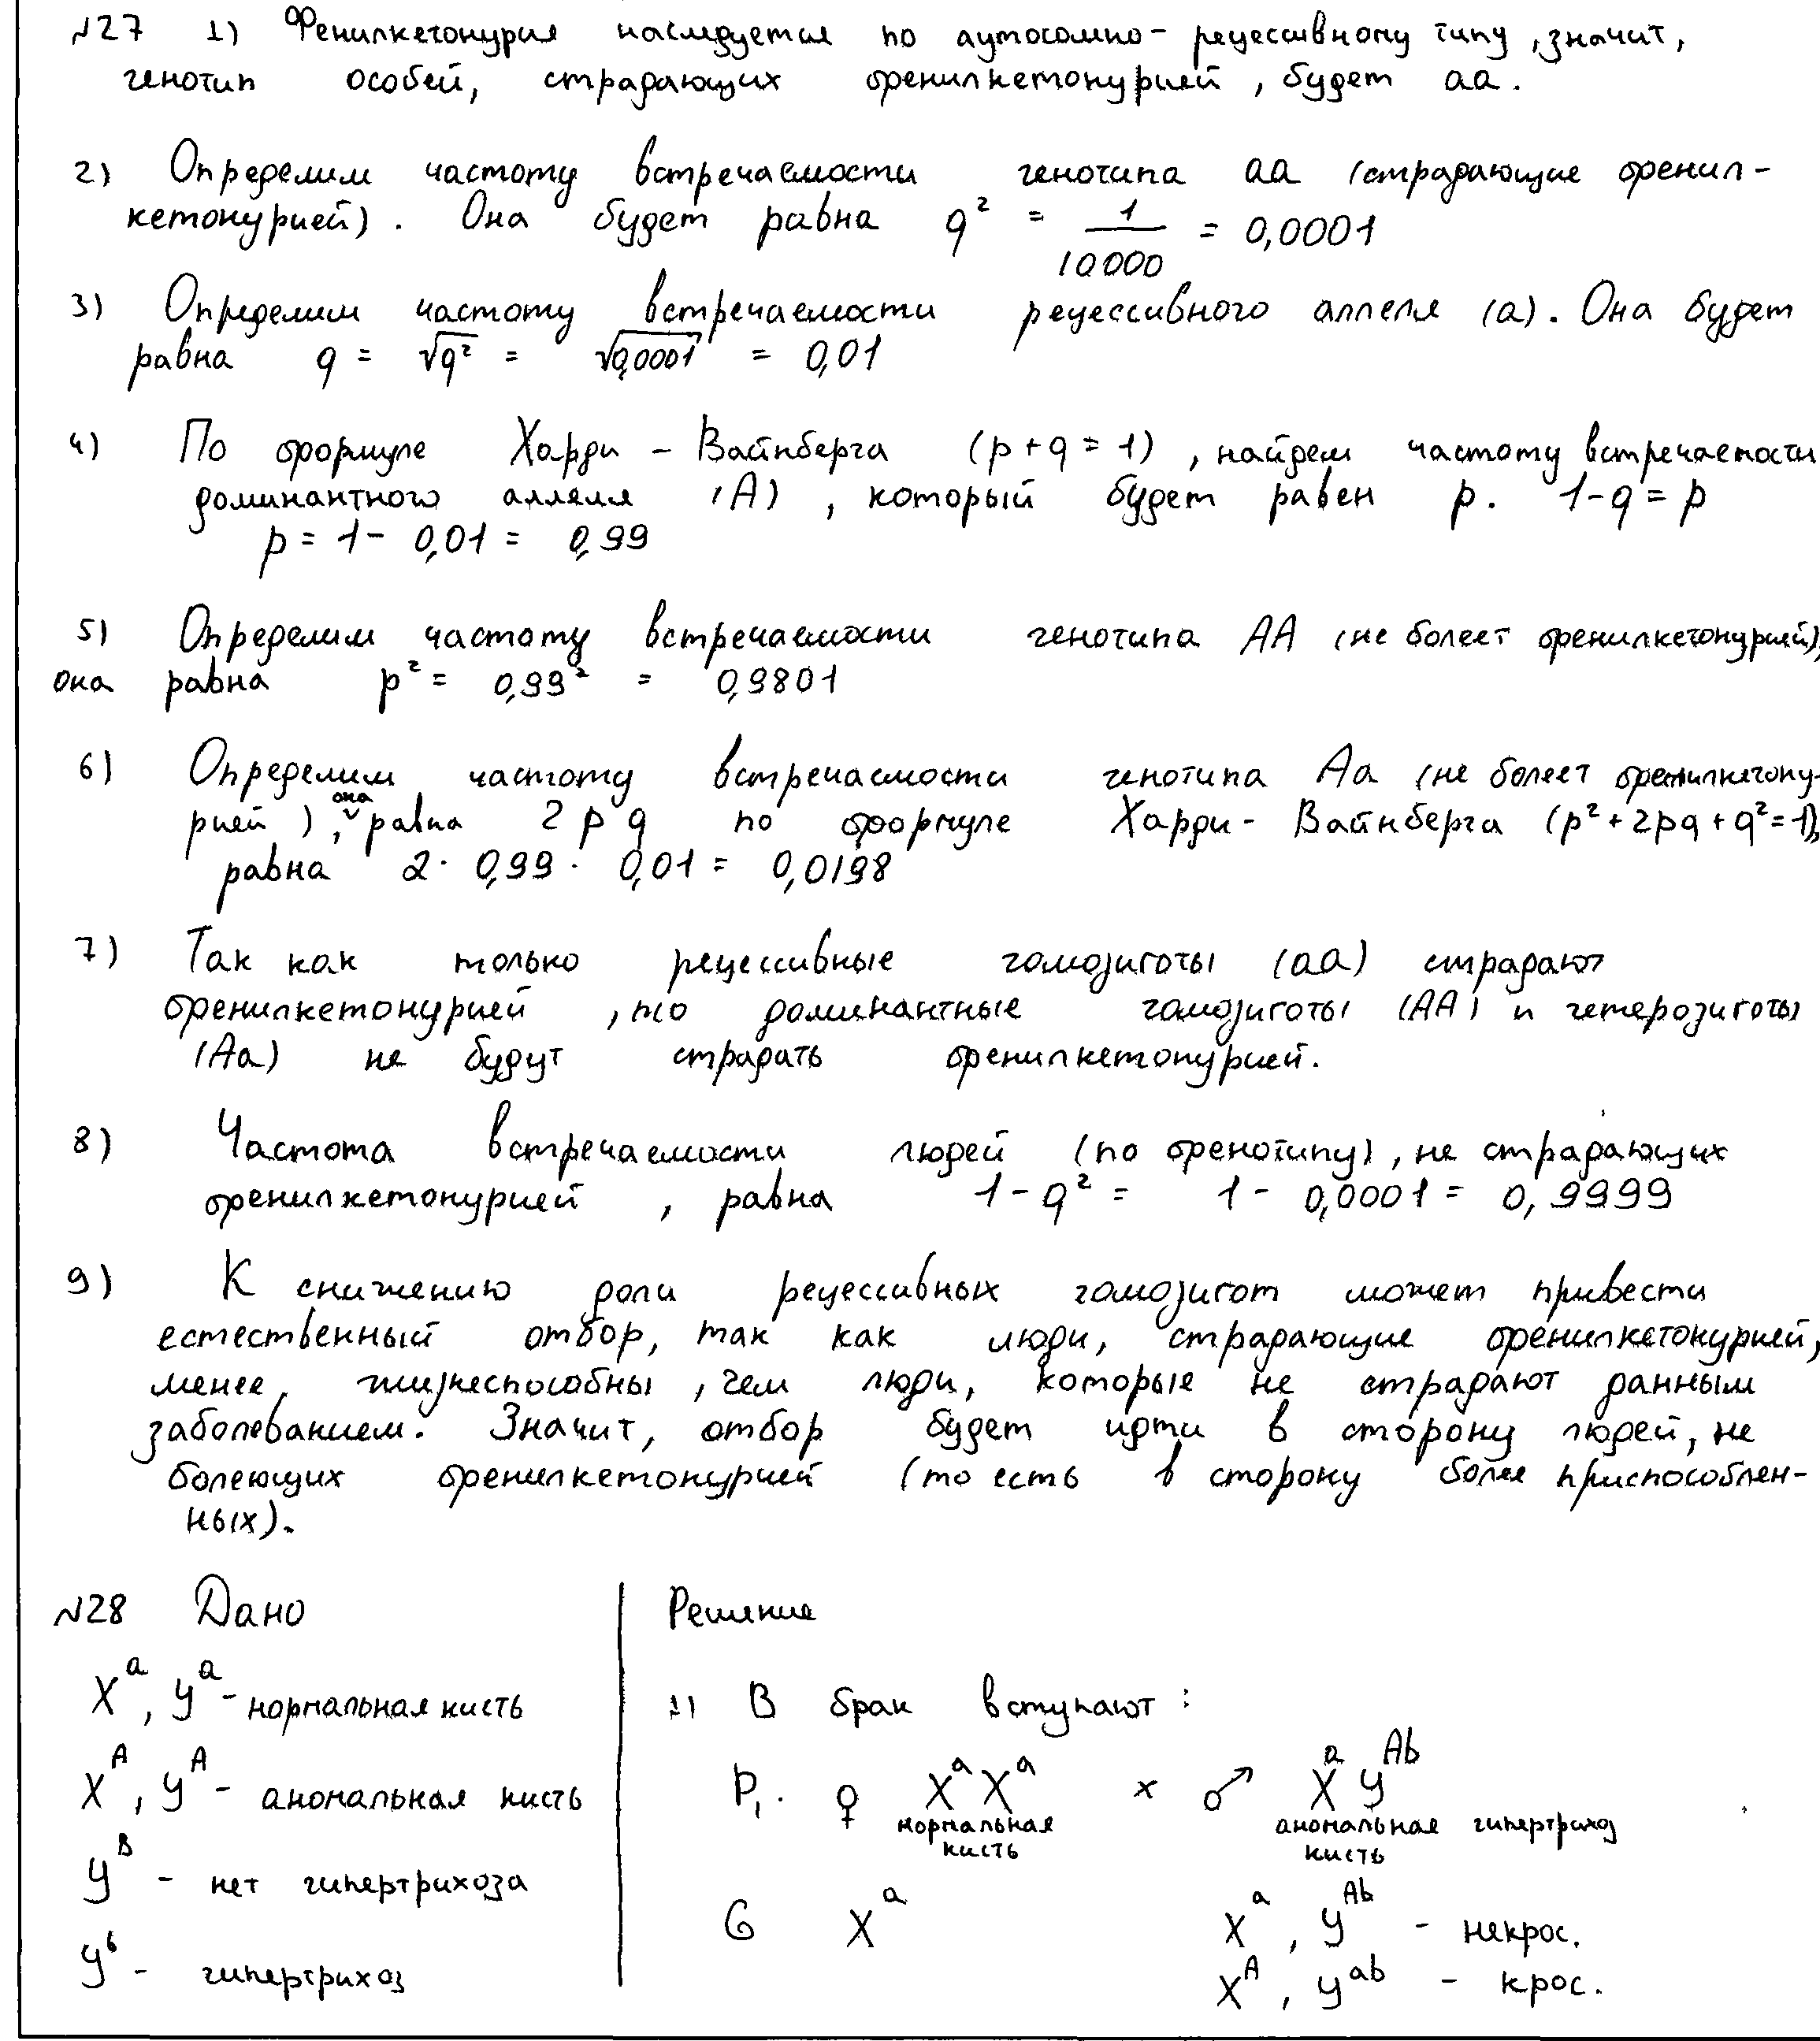 №27 1) Фенилкетонурия наследуется по аутосомно-рецессивному типу, значит,
генотип особей, страдающих фенилкетонурией, будет аа.
2) Определим частоту встречаемости генотипа аа (страдающие фенил-
кетонурией). Она будет равна q² = 1/10000 = 0,0001
3) Определим частоту встречаемости рецессивного аллеля (а). Она будет
равна q = √q² = √0,0001 = 0,01
4) По формуле Харди - Вайнберга (p+q=1), найдем частоту встречаемости
доминантного аллеля (А), который будет равен p. 1-q=p
p = 1 - 0,01 = 0,99
5) Определим частоту встречаемости генотипа АА (не болеет фенилкетонурией),
она равна p² = 0,99² = 0,9801
6) Определим частоту встречаемости генотипа Аа (не болеет фенилкетону-
рией), она равна 2pq по формуле Харди - Вайнберга (p²+2pq+q²=1),
равна 2 · 0,99 · 0,01 = 0,0198
7) Так как только рецессивные гомозиготы (аа) страдают
фенилкетонурией, то доминантные гомозиготы (АА) и гетерозиготы
(Аа) не будут страдать фенилкетонурией.
8) Частота встречаемости людей (по фенотипу), не страдающих
фенилкетонурией, равна 1-q² = 1 - 0,0001 = 0,9999
9) К снижению доли рецессивных гомозигот может привести
естественный отбор, так как люди, страдающие фенилкетонурией,
менее жизнеспособны, чем люди, которые не страдают данным
заболеванием. Значит, отбор будет идти в сторону людей, не
болеющих фенилкетонурией (то есть в сторону более приспособлен-
ных).
№28 Дано
Xᵃ, Yᵃ - нормальная кисть
Xᴬ, Yᴬ - аномальная кисть
Yᴮ - нет гипертрихоза
Yᵇ - гипертрихоз
Решение
1) В брак вступают:
P₁. ♀ XᵃXᵃ × ♂ XᵃYᴬᵇ
нормальная кисть аномальная кисть гипертрихоз
G Xᵃ Xᵃ, Yᴬᵇ - некрос.
Xᴬ, Yᵃᵇ - крос.